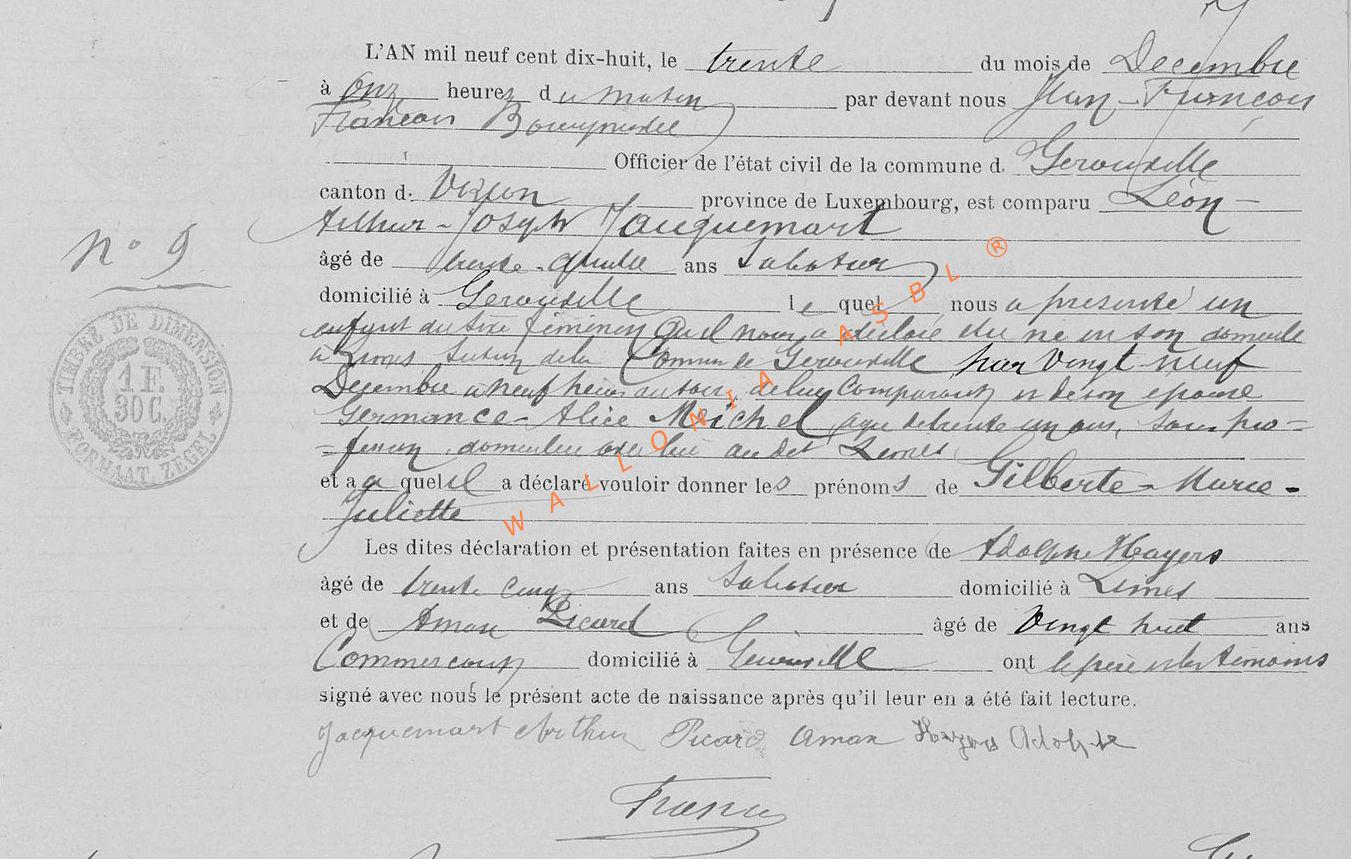 L'AN mil neuf cent dix-huit, le trente du mois de Decembre
à onz heures du matin par devant nous Jean-François
François
Officier de l'état civil de la commune d. Gerouville
canton d. Virton province de Luxembourg, est comparu Léon-
Arthur-Joseph Jacquemart
âgé de trente-quatre ans Sabotier
domicilié à Gerouville le quel nous a présenté un
enfant du sexe féminin qu'il nous a déclaré être né en son domicile
à Limes section de la Commune de Gerouville hier vingt-neuf
Décembre à neuf heures du soir, de lui comparant et de son épouse
Germance-Alice Michel, agée de trente un ans, sans pro=
=fession, domiciliée avec lui au dit Limes
et a quel il a déclaré vouloir donner les prénoms de Gilberte-Marie-
Juliette
Les dites déclaration et présentation faites en présence de Adolphe Hayers
âgé de trente cinq ans Sabotier domicilié à Limes
et de Aman Picard âgé de Vingt huit ans
Commercant domicilié à Gerouville ont le père et les témoins
signé avec nous le présent acte de naissance après qu'il leur en a été fait lecture.
Jacquemart Arthur Picard Aman Hayers Adolphe
N° 9
TIMBRE DE DIMENSION
1 F.
30 C.
FORMAAT ZEGEL
WALLONIA ASBL ®